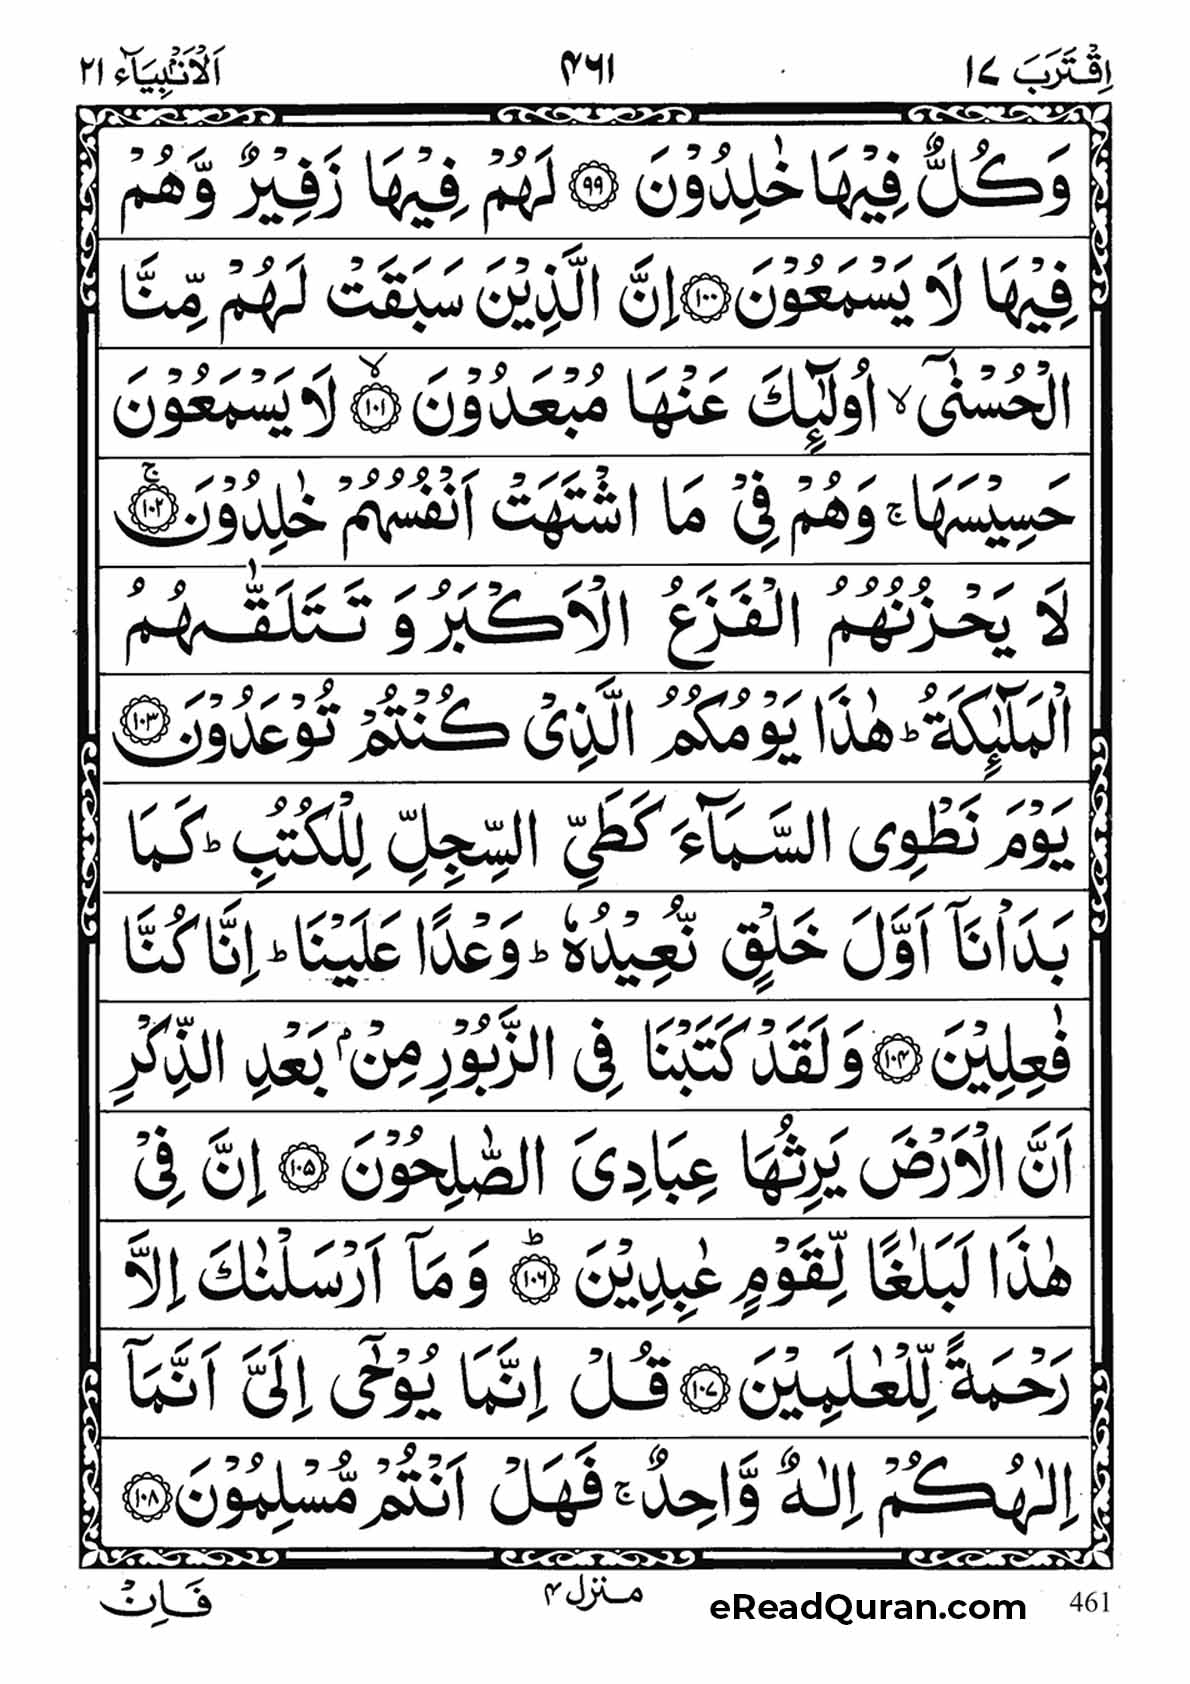 اِقْتَرَبَ ١٧
٤٦١
اَلْاَنْۢبِيَآء ٢١
وَكُلٌّ فِيْهَا خٰلِدُوْنَ ﴿٩٩﴾ لَهُمْ فِيْهَا زَفِيْرٌ وَّهُمْ
فِيْهَا لَا يَسْمَعُوْنَ ﴿١٠٠﴾ اِنَّ الَّذِيْنَ سَبَقَتْ لَهُمْ مِّنَّا
الْحُسْنٰٓى ۙ اُولٰٓئِكَ عَنْهَا مُبْعَدُوْنَ ﴿١٠١﴾ۙ لَا يَسْمَعُوْنَ
حَسِيْسَهَا ۚ وَهُمْ فِيْ مَا اشْتَهَتْ اَنْفُسُهُمْ خٰلِدُوْنَ ﴿١٠٢﴾ۚ
لَا يَحْزُنُهُمُ الْفَزَعُ الْاَكْبَرُ وَتَتَلَقّٰىهُمُ
الْمَلٰٓئِكَةُ ؕ هٰذَا يَوْمُكُمُ الَّذِيْ كُنْتُمْ تُوْعَدُوْنَ ﴿١٠٣﴾
يَوْمَ نَطْوِى السَّمَآءَ كَطَيِّ السِّجِلِّ لِلْكُتُبِ ؕ كَمَا
بَدَاْنَآ اَوَّلَ خَلْقٍ نُّعِيْدُهٗ ؕ وَعْدًا عَلَيْنَا ؕ اِنَّا كُنَّا
فٰعِلِيْنَ ﴿١٠٤﴾ وَلَقَدْ كَتَبْنَا فِى الزَّبُوْرِ مِنْۢ بَعْدِ الذِّكْرِ
اَنَّ الْاَرْضَ يَرِثُهَا عِبَادِىَ الصّٰلِحُوْنَ ﴿١٠٥﴾ اِنَّ فِيْ
هٰذَا لَبَلٰغًا لِّقَوْمٍ عٰبِدِيْنَ ﴿١٠٦﴾ؕ وَمَآ اَرْسَلْنٰكَ اِلَّا
رَحْمَةً لِّلْعٰلَمِيْنَ ﴿١٠٧﴾ قُلْ اِنَّمَا يُوْحٰٓى اِلَيَّ اَنَّمَآ
اِلٰهُكُمْ اِلٰهٌ وَّاحِدٌ ۚ فَهَلْ اَنْتُمْ مُّسْلِمُوْنَ ﴿١٠٨﴾
461
eReadQuran.com
منزل ٤
فَاِنْ